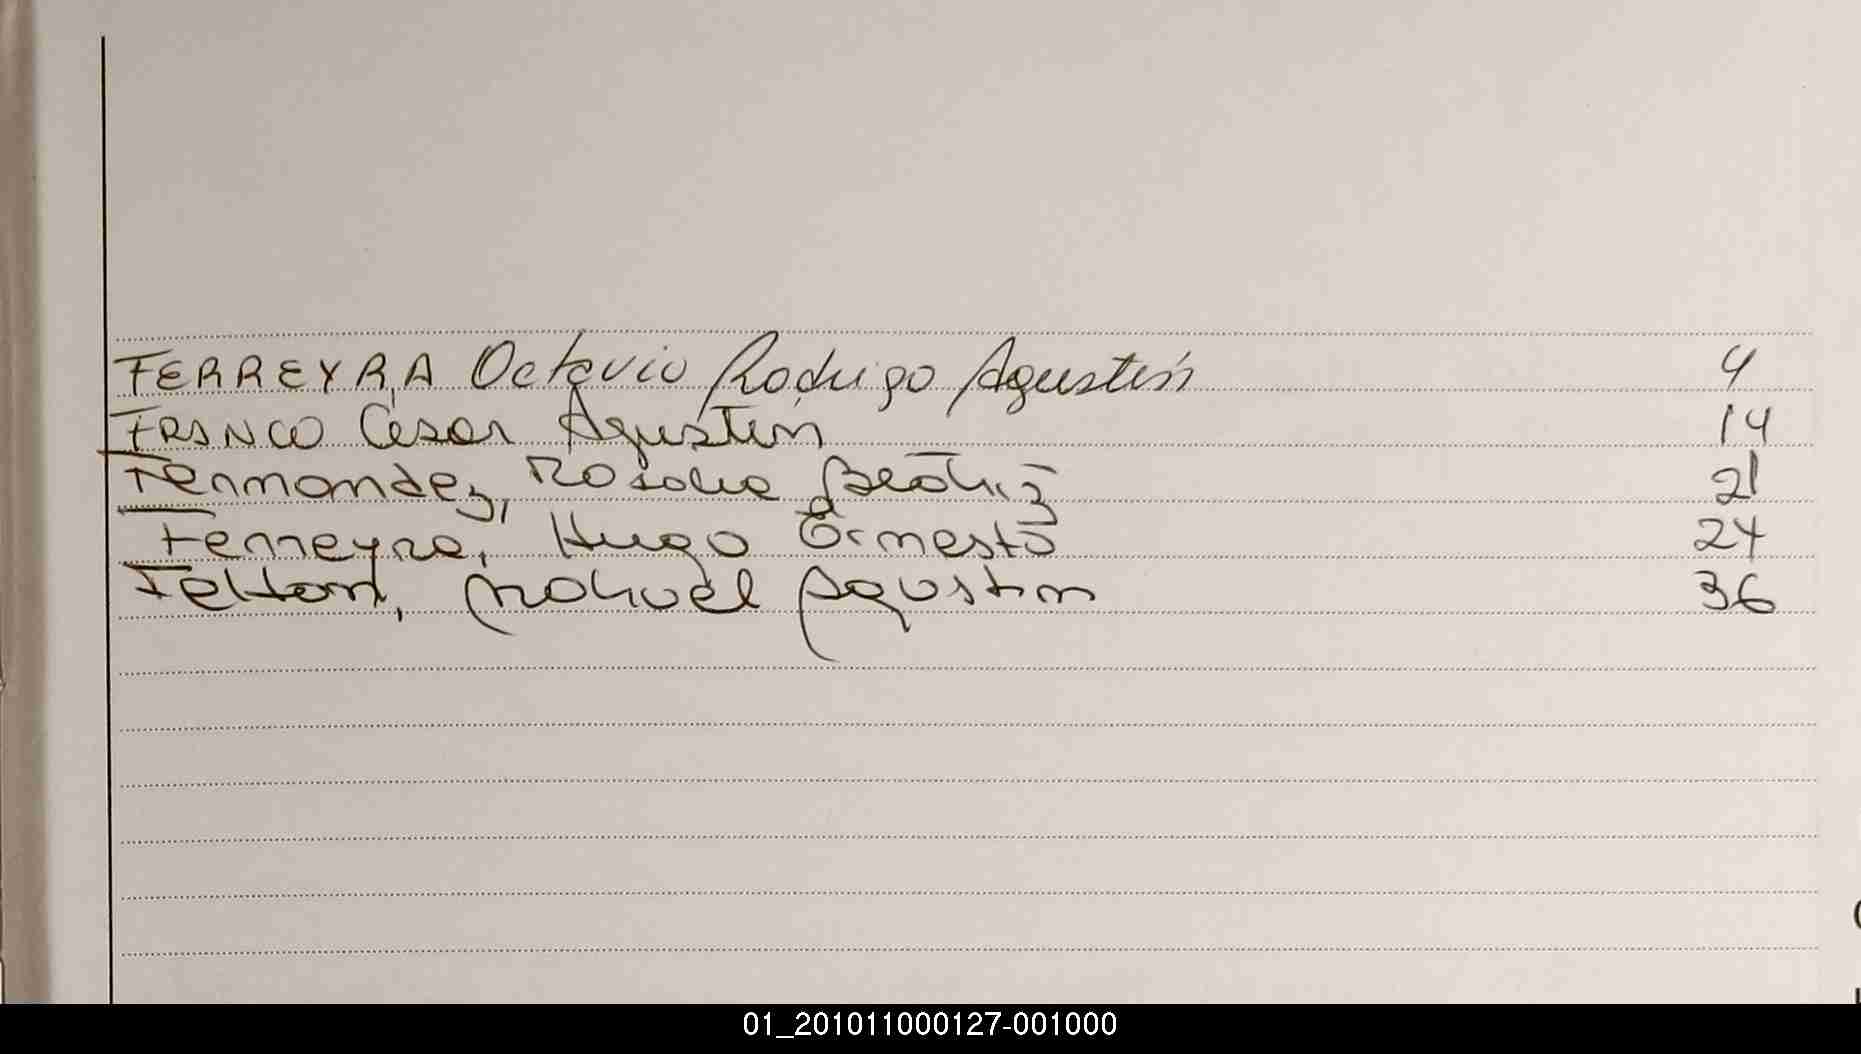 FERREYRA Octavio Rodrigo Agustín 4
FRANCO César Agustín 14
Fernandez, Rosalia Beatriz 21
Ferreyra, Hugo Ernesto 24
Agustin 36
01_201011000127-001000